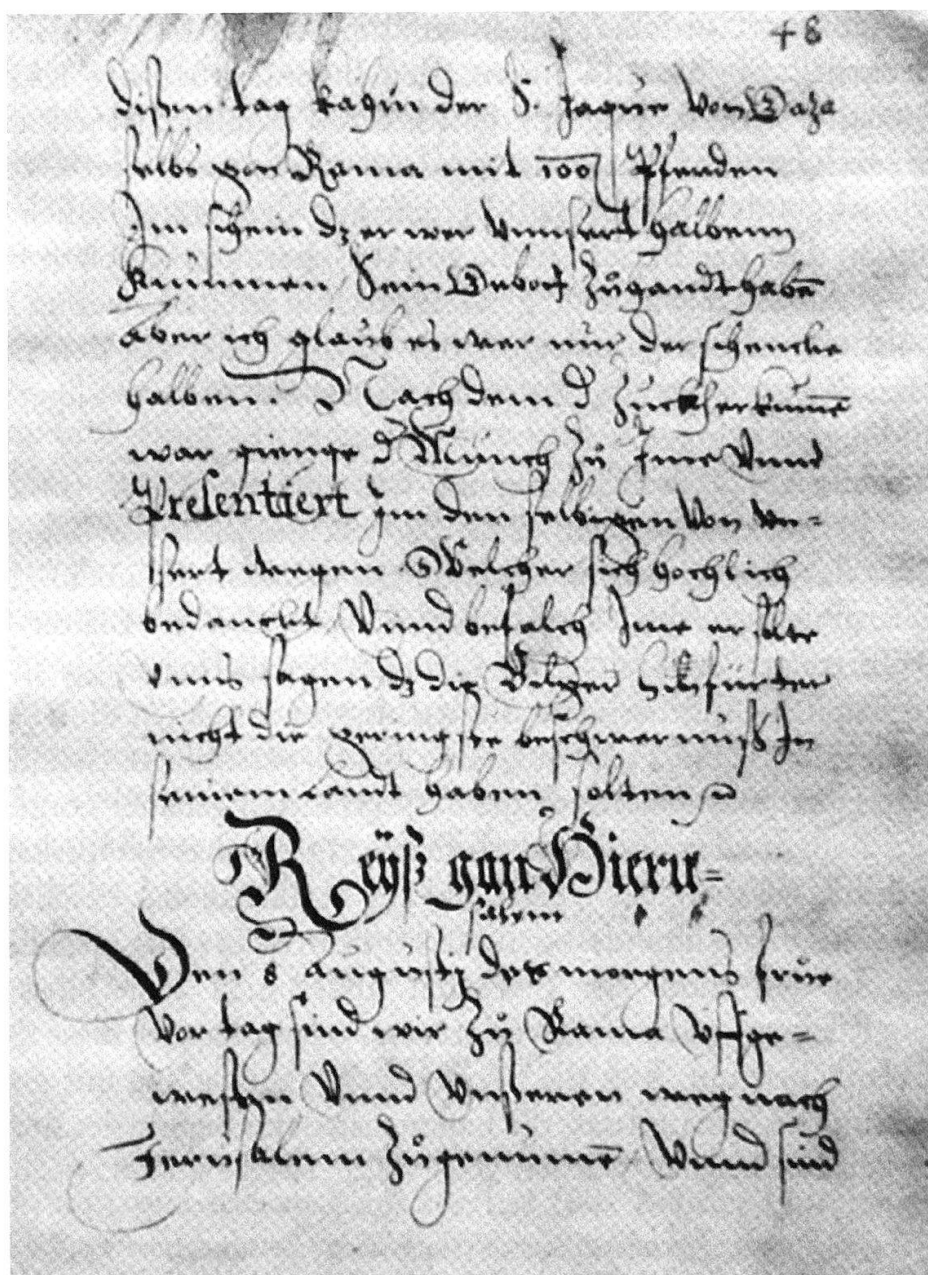 48
dißen tag kahm der S. Jaque von Gaza
selbs gon Rama mit 100 Pferden
Im schein dz er wer vnnsert halbenn
kummen, Sein zů handthabē
Aber ich glaub es wer nur der schencke
halben. Nach dem d Zuckher kummē
war gienge d Münch zů Ime vnnd
Presentiert Im den selbigen von vn=
sert wegen Welcher sich hochlich
bedanckt, vnnd befalch Ime er solte
vnns sagen dz die Bilger hinfürter
nicht die geringste beschwernuß In
seinem Landt haben solten
Reyß gan Hieru=
salem
Den 8 Augusty des morgens frue
vor tag sind wir zů Rama vffge=
wesen vnnd vnßeren weg nach
Jerusalem zůgenumē, vnnd sind